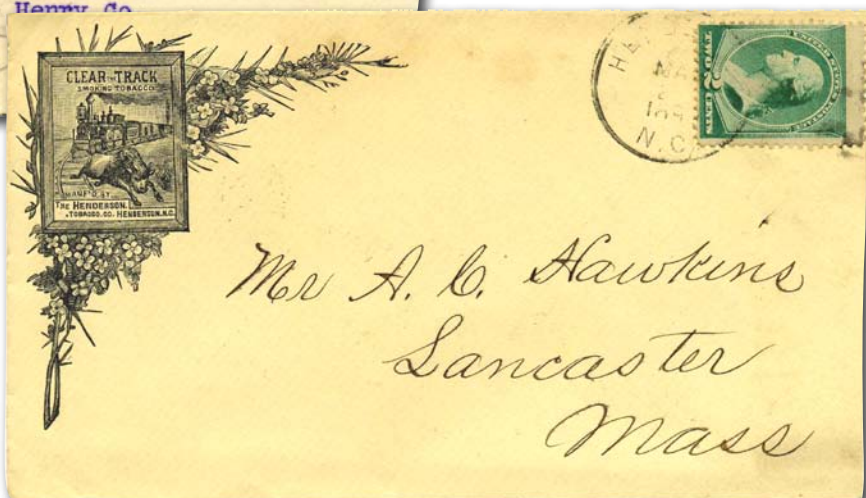 Henry Co
CLEAR THE TRACK
SMOKING TOBACCO
MANF'D BY
THE HENDERSON
TOBACCO. CO. HENDERSON. N.C.
N.C.
UNITED STATES POSTAGE
TWO 2 CENTS
Mr A. C. Hawkins
Lancaster
Mass